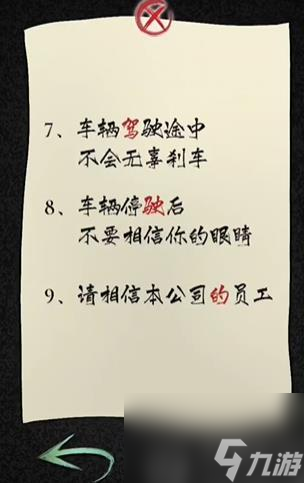 7、车辆驾驶途中
不会无辜刹车
8、车辆停驶后
不要相信你的眼睛
9、请相信本公司的员工
九游